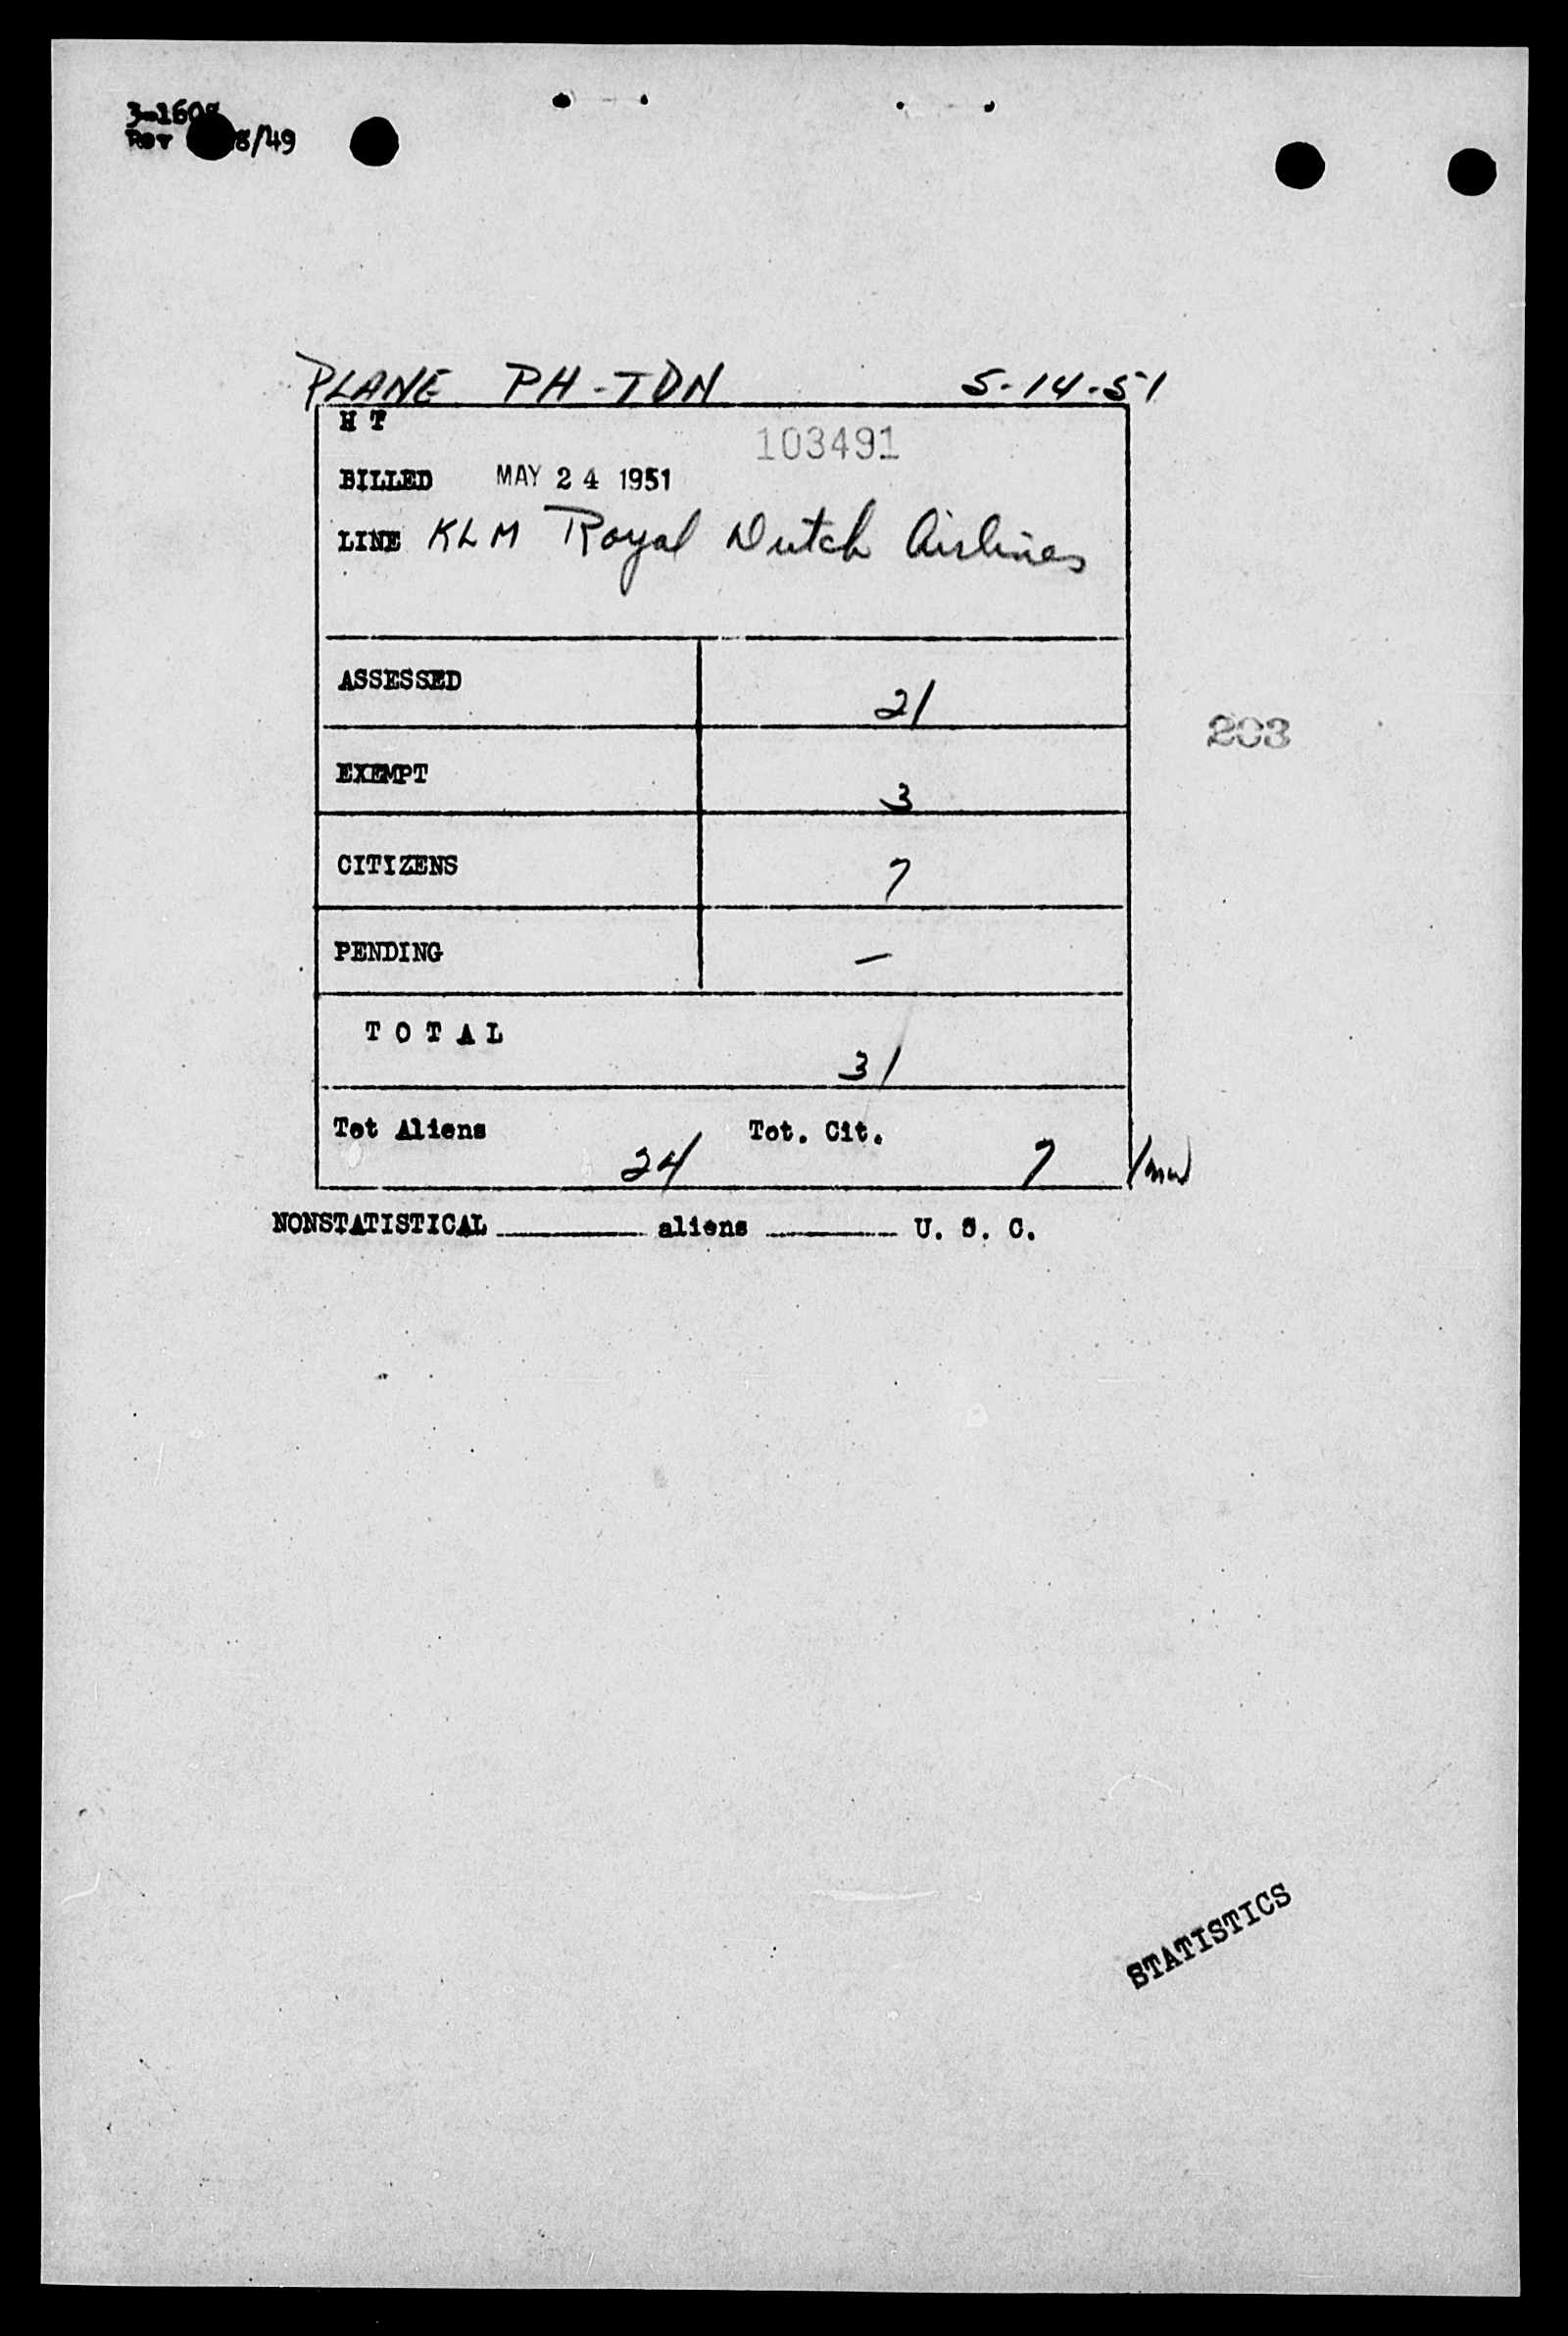 3-1608
Rev 8/49
PLANE PH-TDN 5-14-51
H T
103491
BILLED MAY 24 1951
LINE KLM Royal Dutch Airlines
ASSESSED 21
203
EXEMPT 3
CITIZENS 7
PENDING —
T O T A L 31
Tot Aliens 24 Tot. Cit. 7
NONSTATISTICAL ________ aliens ________ U. S. C.
STATISTICS